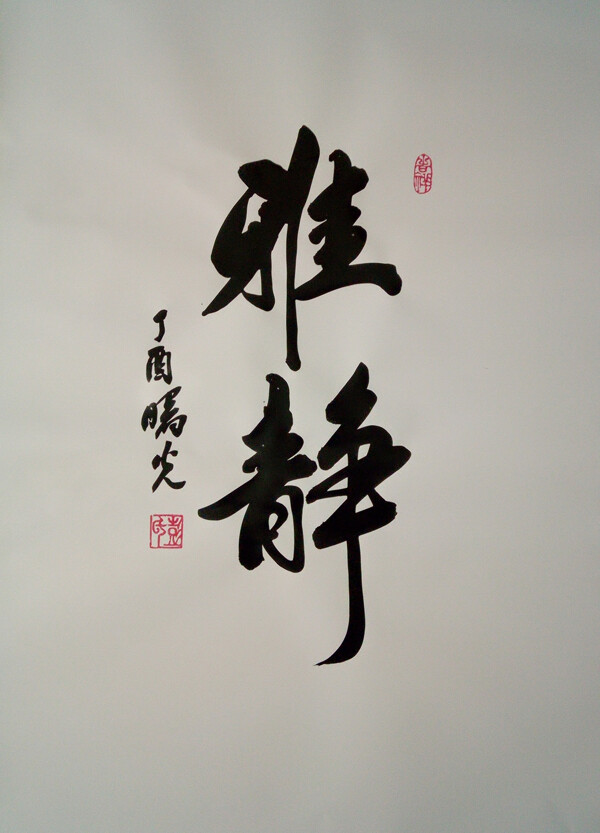 雅静
丁酉曙光